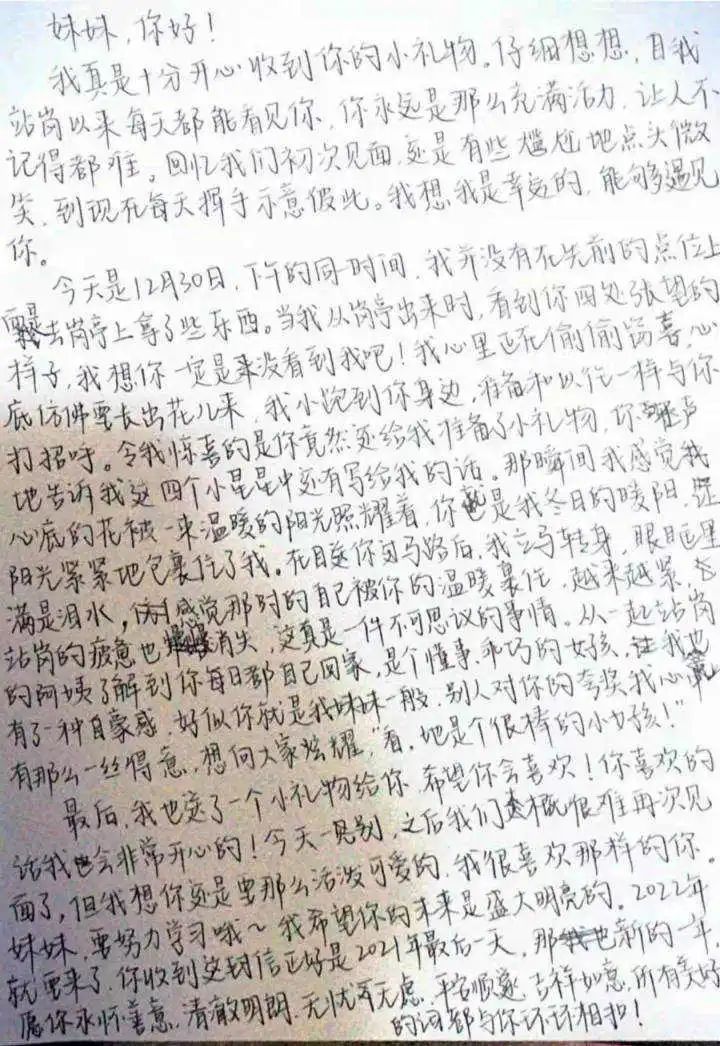 妹妹，你好！
我真是十分开心收到你的小礼物。仔细想想，自我
站岗以来每天都能看见你，你永远是那么充满活力，让人不
记得都难。回忆我们初次见面，还是有些尴尬地点头微
笑，到现在每天挥手示意彼此。我想我是幸运的，能够遇见
你。
今天是12月30日，下午的同一时间，我并没有在先前的点位上
而是去岗亭上拿了些东西。当我从岗亭出来时，看到你四处张望的
样子，我想你一定是来没看到我吧！我心里已偷偷窃喜，心
底仿佛要长出花儿来，我小跑到你身边，准备和以往一样与你
打招呼。令我惊喜的是你竟然还给我准备了小礼物，你轻声
地告诉我这四个小星星中还有写给我的话。那瞬间我感觉我
心底的花被一束温暖的阳光照耀着，你是我冬日的暖阳，
阳光紧紧地包裹住了我。在目送你过马路后，我立马转身，眼眶里
满是泪水，感觉那时的自己被你的温暖裹住，越来越紧，
站岗的疲惫也消失，这真是一件不可思议的事情。从一起站岗
的阿姨了解到你每日都自己回家，是个懂事、乖巧的女孩，让我也
有了一种自豪感，好似你就是我妹妹一般，别人对你的夸奖我心里
有那么一丝得意，想向大家炫耀，“看，她是个很棒的小女孩！”
最后，我也送了一个小礼物给你，希望你会喜欢！你喜欢的
话我也会非常开心的！今天一见别，之后我们大概很难再次见
面了，但我想你还是要那么活泼可爱的，我很喜欢那样的你。
妹妹，要努力学习哦～我希望你的未来是盛大明亮的。2022年
就要来了，你收到这封信正好是2021年最后一天，那新的一年，
愿你永怀善意，清澈明朗，无忧无虑，平安顺遂，吉祥如意，所有美好
的词都与你环环相扣！